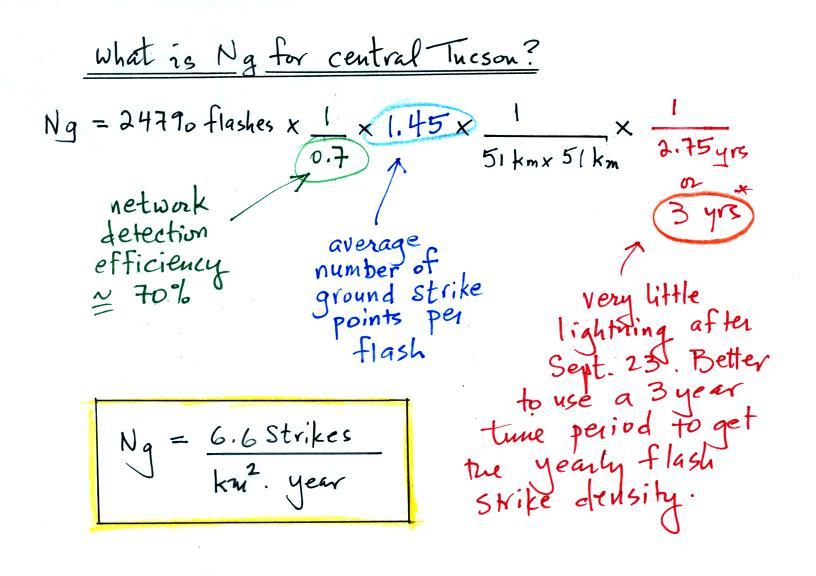 What is Ng for central Tucson?
Ng = 24790 flashes x 1/0.7 x 1.45 x 1/(51 km x 51 km) x 1/2.75 yrs
or
3 yrs *
network
detection
efficiency
≅ 70%
average
number of
ground strike
points per
flash
very little
lightning after
Sept. 23. Better
to use a 3 year
time period to get
the yearly flash
strike density.
Ng = 6.6 Strikes
km². year